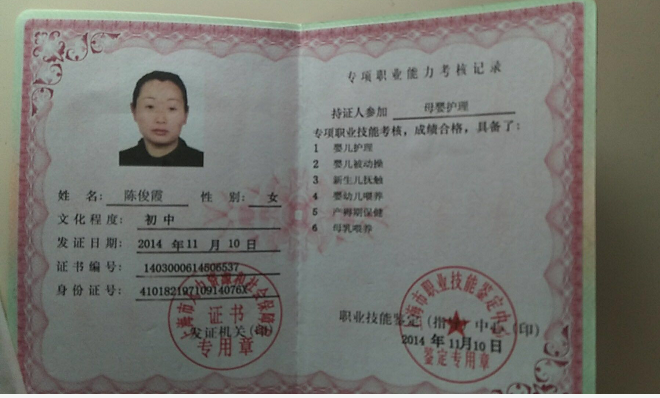 姓 名： 陈俊霞 性 别： 女
文化程度： 初中
发证日期： 2014 年 11 月 10 日
证书编号： 1403000614606537
身份证号： 41018219710914076X
上海市人力资源和社会保障局
证书
专用章
发证机关（印）
专项职业能力考核记录
持证人参加 母婴护理
专项职业技能考核，成绩合格，具备了：
1 婴儿护理
2 婴儿被动操
3 新生儿抚触
4 婴幼儿喂养
5 产褥期保健
6 母乳喂养
上海市职业技能鉴定中心
职业技能鉴定（指导）中心（印）
2014 年 11月10 日
鉴定专用章